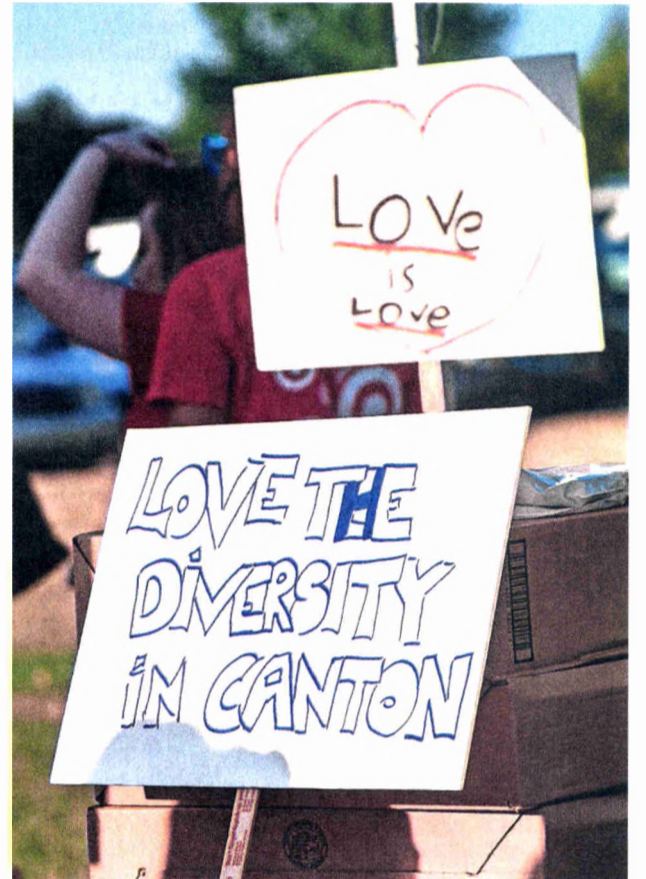 LOVe
is
Love
LOVE THE
DIVERSITY
IN CANTON